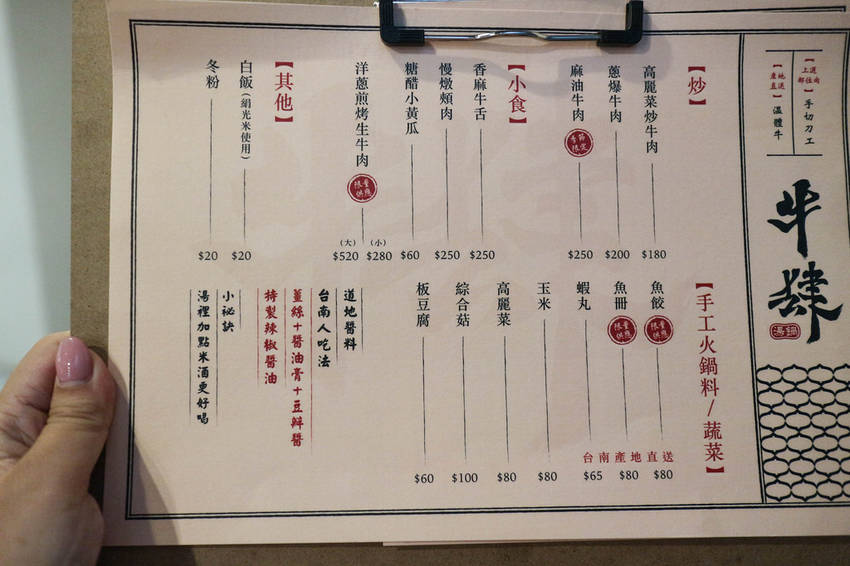 手切刀工
【產地直送】
溫體牛
牛肆
湯鍋
【炒】
高麗菜炒牛肉 $180
蔥爆牛肉 $200
麻油牛肉 季節限定 $250
【小食】
香麻牛舌 $250
慢燉頰肉 $250
糖醋小黃瓜 $60
洋蔥煎烤生牛肉 限量供應 (小) $280 (大) $520
【其他】
白飯(絹光米使用) $20
冬粉 $20
【手工火鍋料/蔬菜】
魚餃 限量供應 $80
魚冊 限量供應 $80
蝦丸 $65
台南產地直送
玉米 $80
高麗菜 $80
綜合菇 $100
板豆腐 $60
道地醬料
台南人吃法
薑絲+醬油膏+豆瓣醬
特製辣椒醬油
小祕訣
湯裡加點米酒更好喝